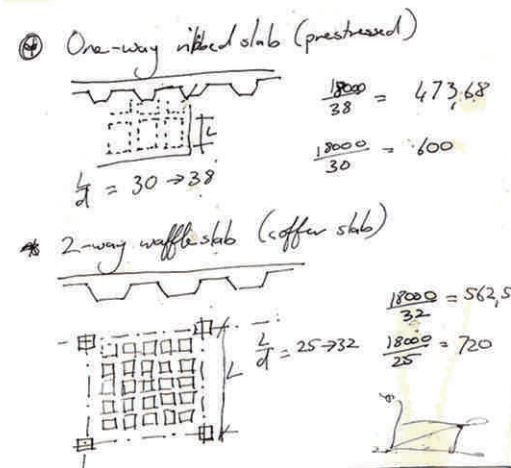 One-way ribbed slab (prestressed)
18000/38 = 473,68
18000/30 = 600
L
L/d = 30 → 38
2-way waffle slab (coffer slab)
18000/32 = 562,5
L/d = 25 → 32
18000/25 = 720
L